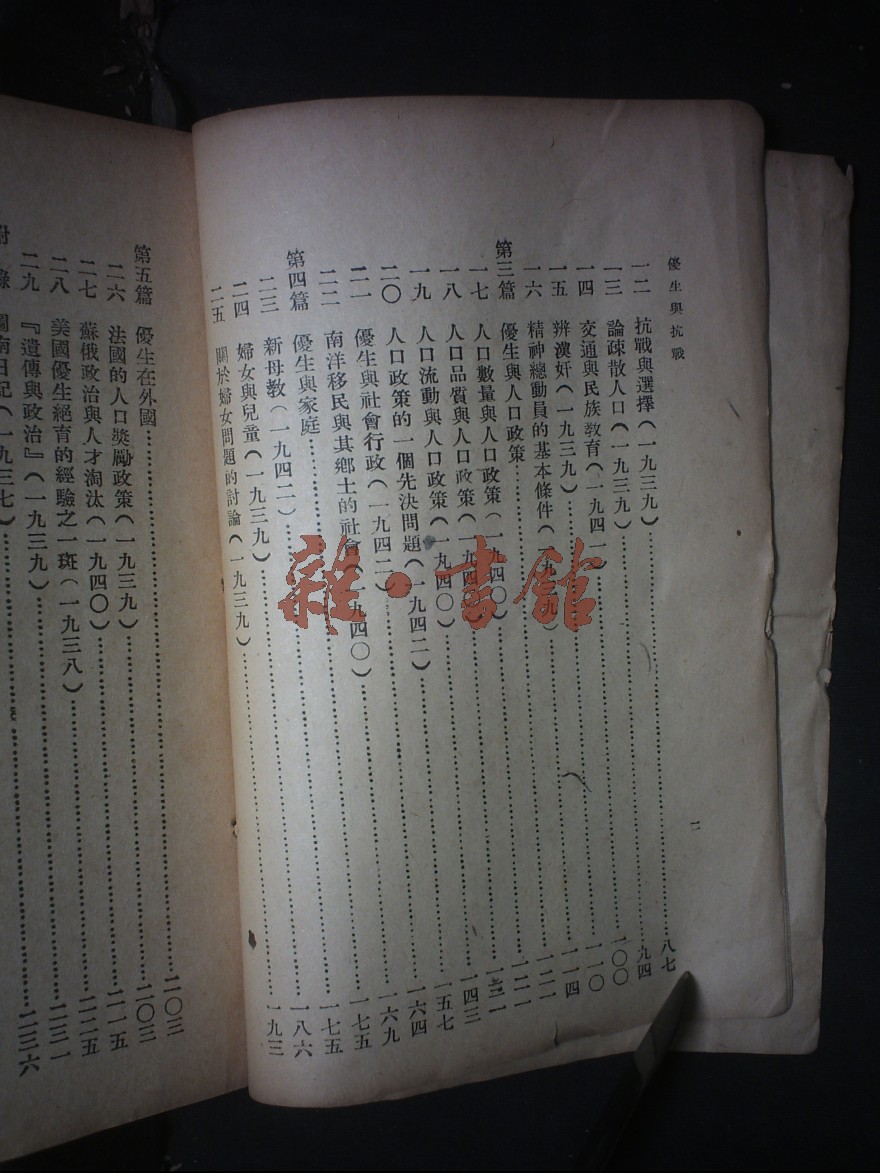 優生與抗戰
二
一二 抗戰與選擇(一九三九)……八七
一三 論疎散人口(一九三九)……九四
一四 交通與民族教育(一九四一)……一〇〇
一五 辨漢奸(一九三九)……一一〇
一六 精神總動員的基本條件(一九三九)……一一四
第三篇 優生與人口政策……一二一
一七 人口數量與人口政策(一九四〇)……一二一
一八 人口品質與人口政策(一九四〇)……一三一
一九 人口流動與人口政策(一九四〇)……一四三
二〇 人口政策的一個先決問題(一九四二)……一五七
二一 優生與社會行政(一九四二)……一六四
二二 南洋移民與其鄉土的社會(一九四〇)……一六九
第四篇 優生與家庭……一七五
二三 新母教(一九四二)……一七五
二四 婦女與兒童(一九三九)……一八六
二五 關於婦女問題的討論(一九三九)……一九三
第五篇 優生在外國……二〇三
二六 法國的人口獎勵政策(一九三九)……二〇三
二七 蘇俄政治與人才淘汰(一九四〇)……二一五
二八 美國優生絕育的經驗之一斑(一九三八)……二二五
二九 『遺傳與政治』(一九三九)……二三一
附錄 圖南日記(一九三七)……二三六
雜·書館